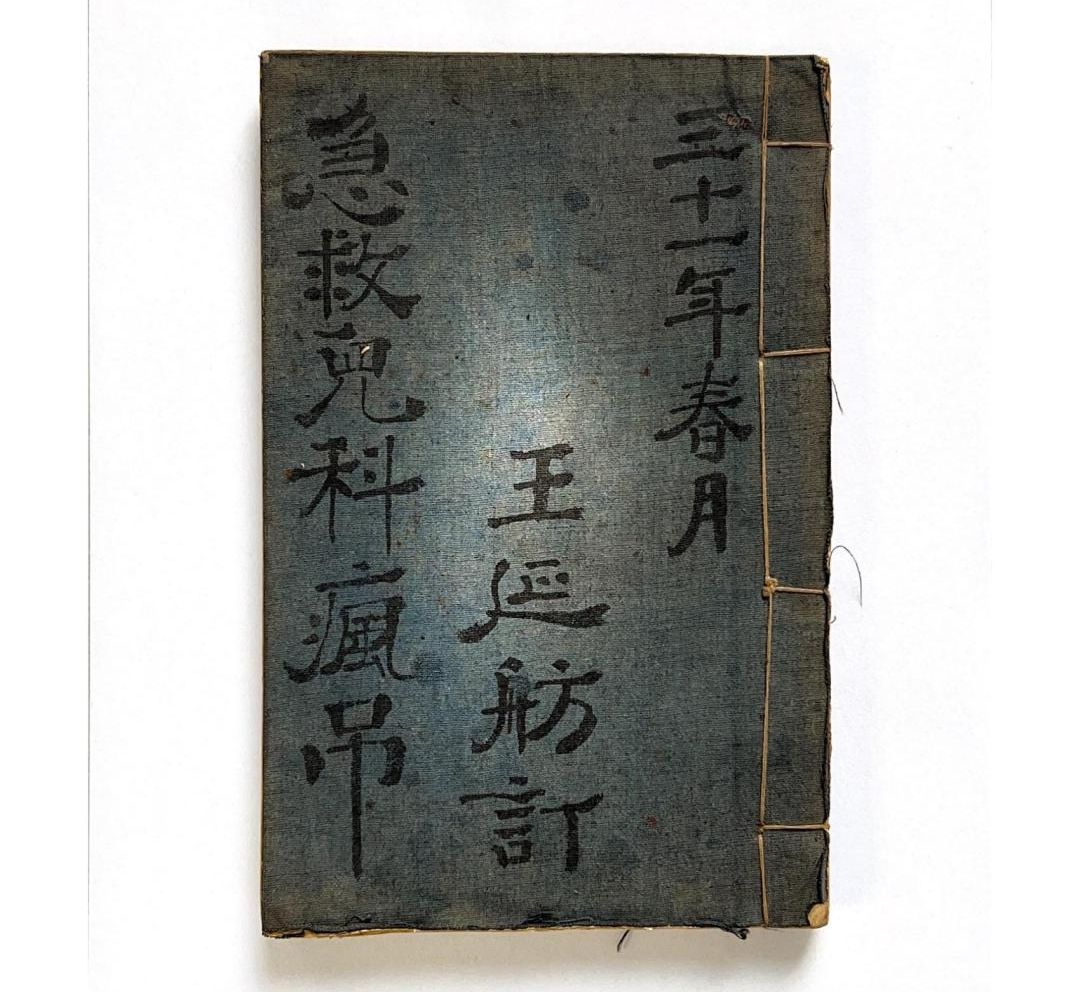 三十一年春月
王延舫訂
急救兒科瘋吊